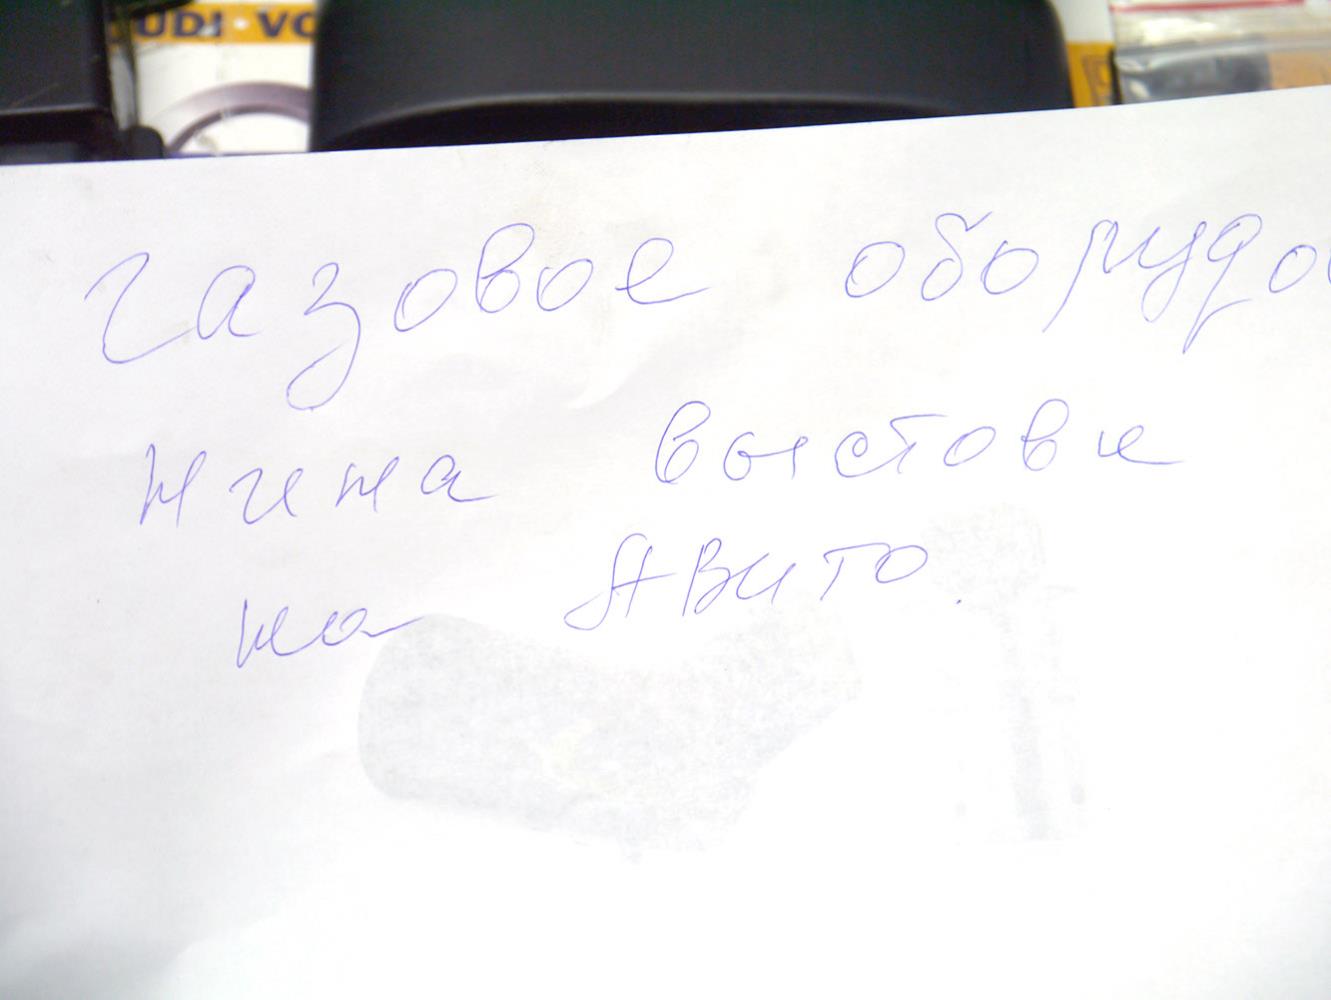 UDI · VO
газовое оборудо
выстави
на Авито.